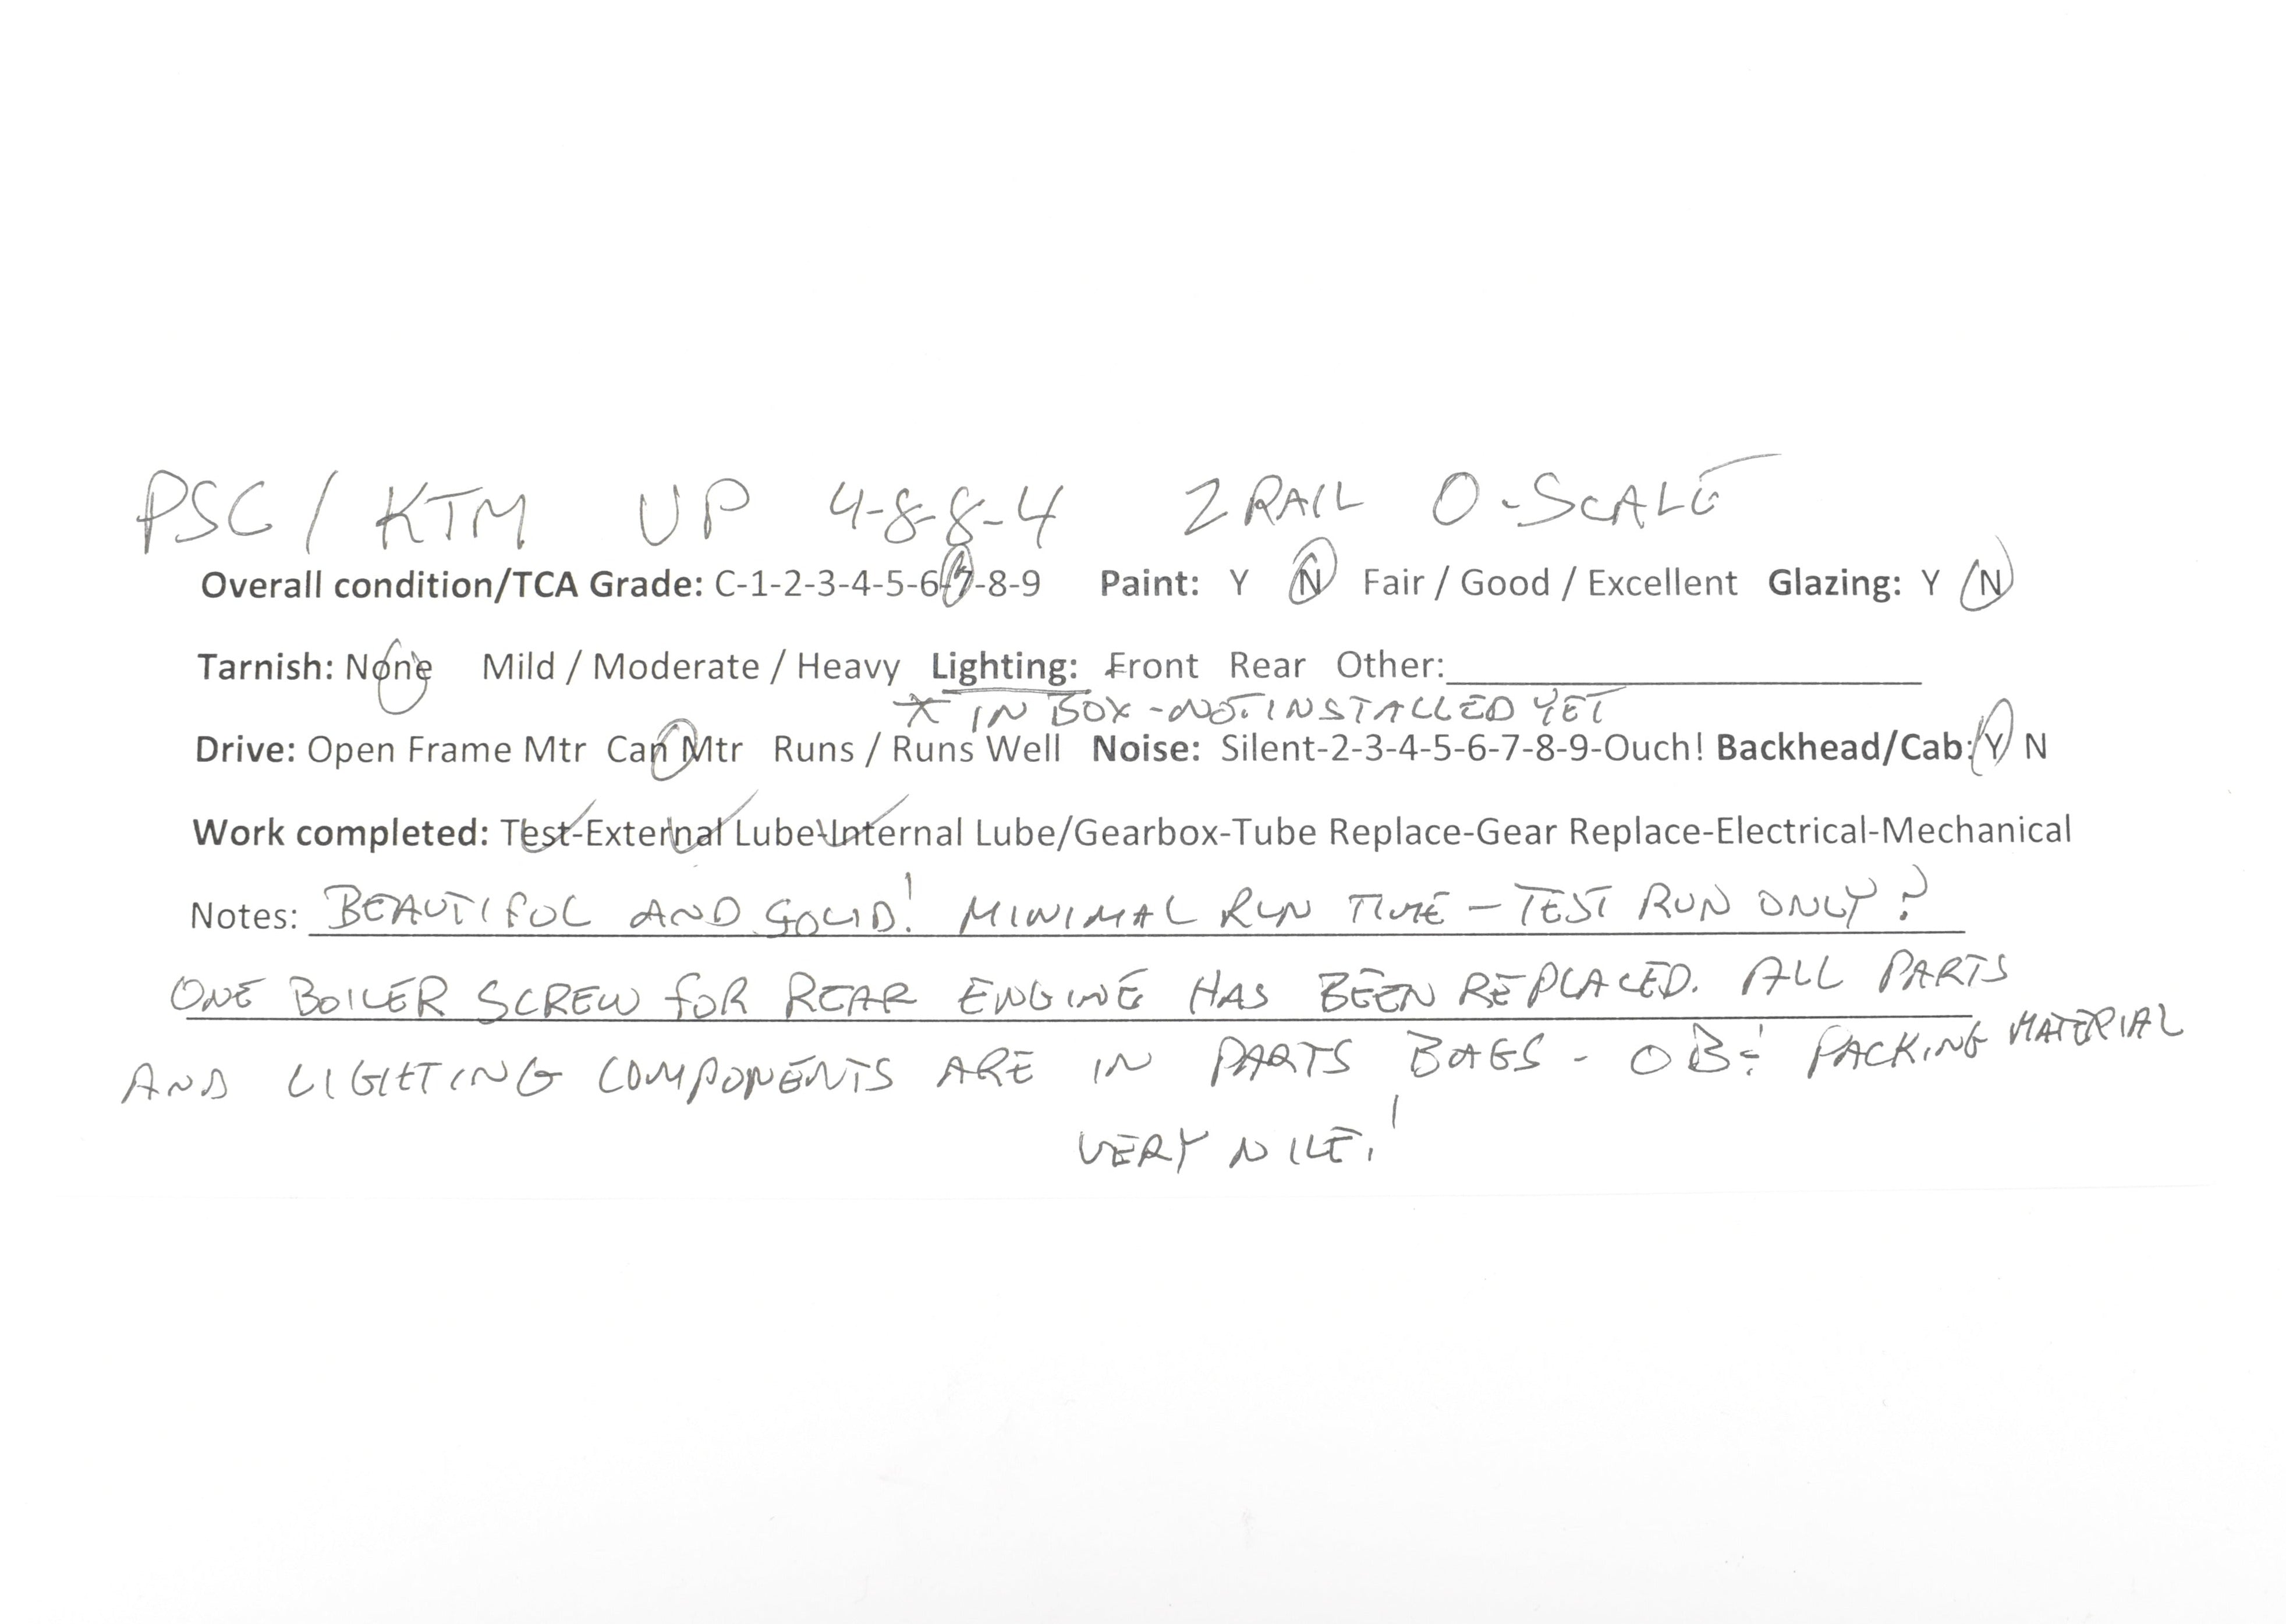 PSC / KTM UP 4-8-8-4 2 RAIL O-SCALE
Overall condition/TCA Grade: C-1-2-3-4-5-6-7-8-9 Paint: Y N Fair / Good / Excellent Glazing: Y N
Tarnish: None Mild / Moderate / Heavy Lighting: Front Rear Other:
* IN BOX - NOT INSTALLED YET
Drive: Open Frame Mtr Can Mtr Runs / Runs Well Noise: Silent-2-3-4-5-6-7-8-9-Ouch! Backhead/Cab: Y N
Work completed: Test-External Lube-Internal Lube/Gearbox-Tube Replace-Gear Replace-Electrical-Mechanical
Notes: BEAUTIFUL AND SOLID! MINIMAL RUN TIME - TEST RUN ONLY?
ONE BOILER SCREW FOR REAR ENGINE HAS BEEN REPLACED. ALL PARTS
AND LIGHTING COMPONENTS ARE IN PARTS BAGS - OB & PACKING MATERIAL
VERY NICE!